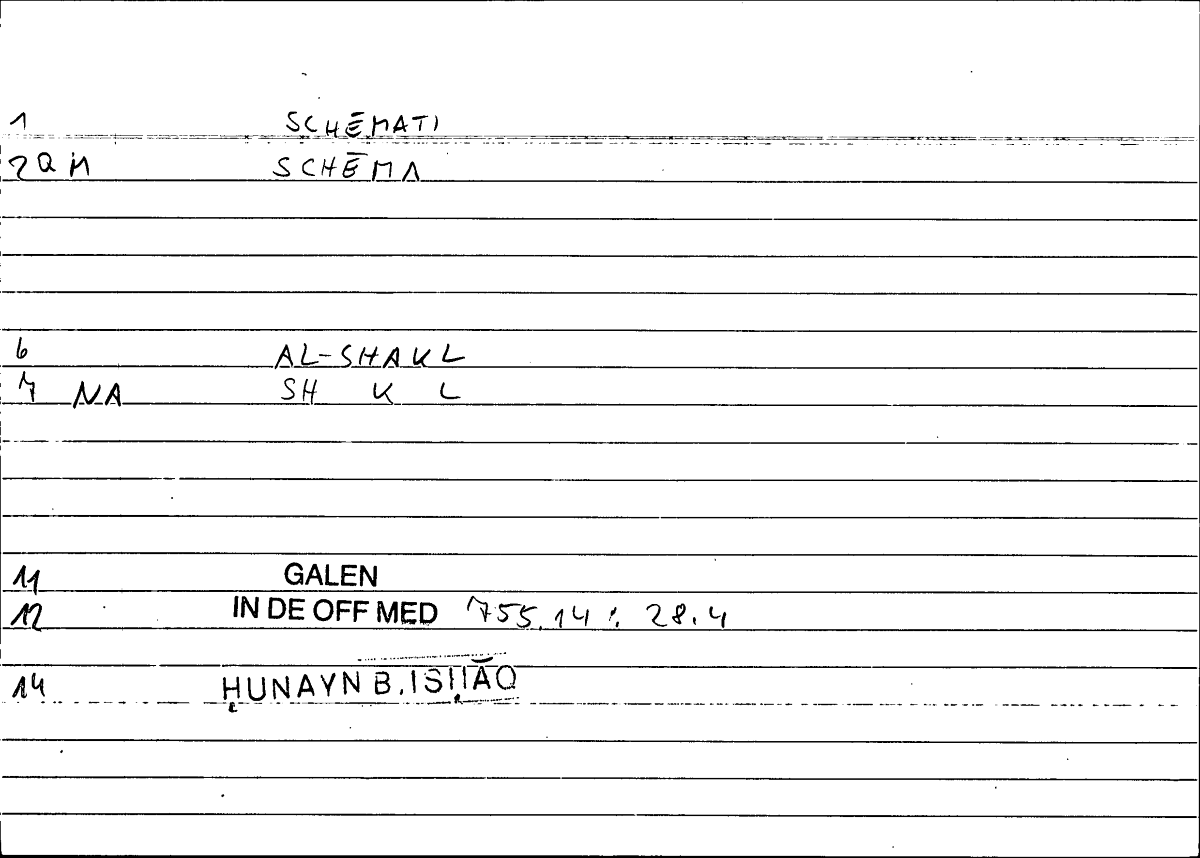 1 SCHĒMATI
2 Q M SCHĒMA
6 AL-SHAKL
7 NA SH K L
11 GALEN
12 IN DE OFF MED 755.14 : 28.4
14 ḤUNAYN B. ISḤĀQ